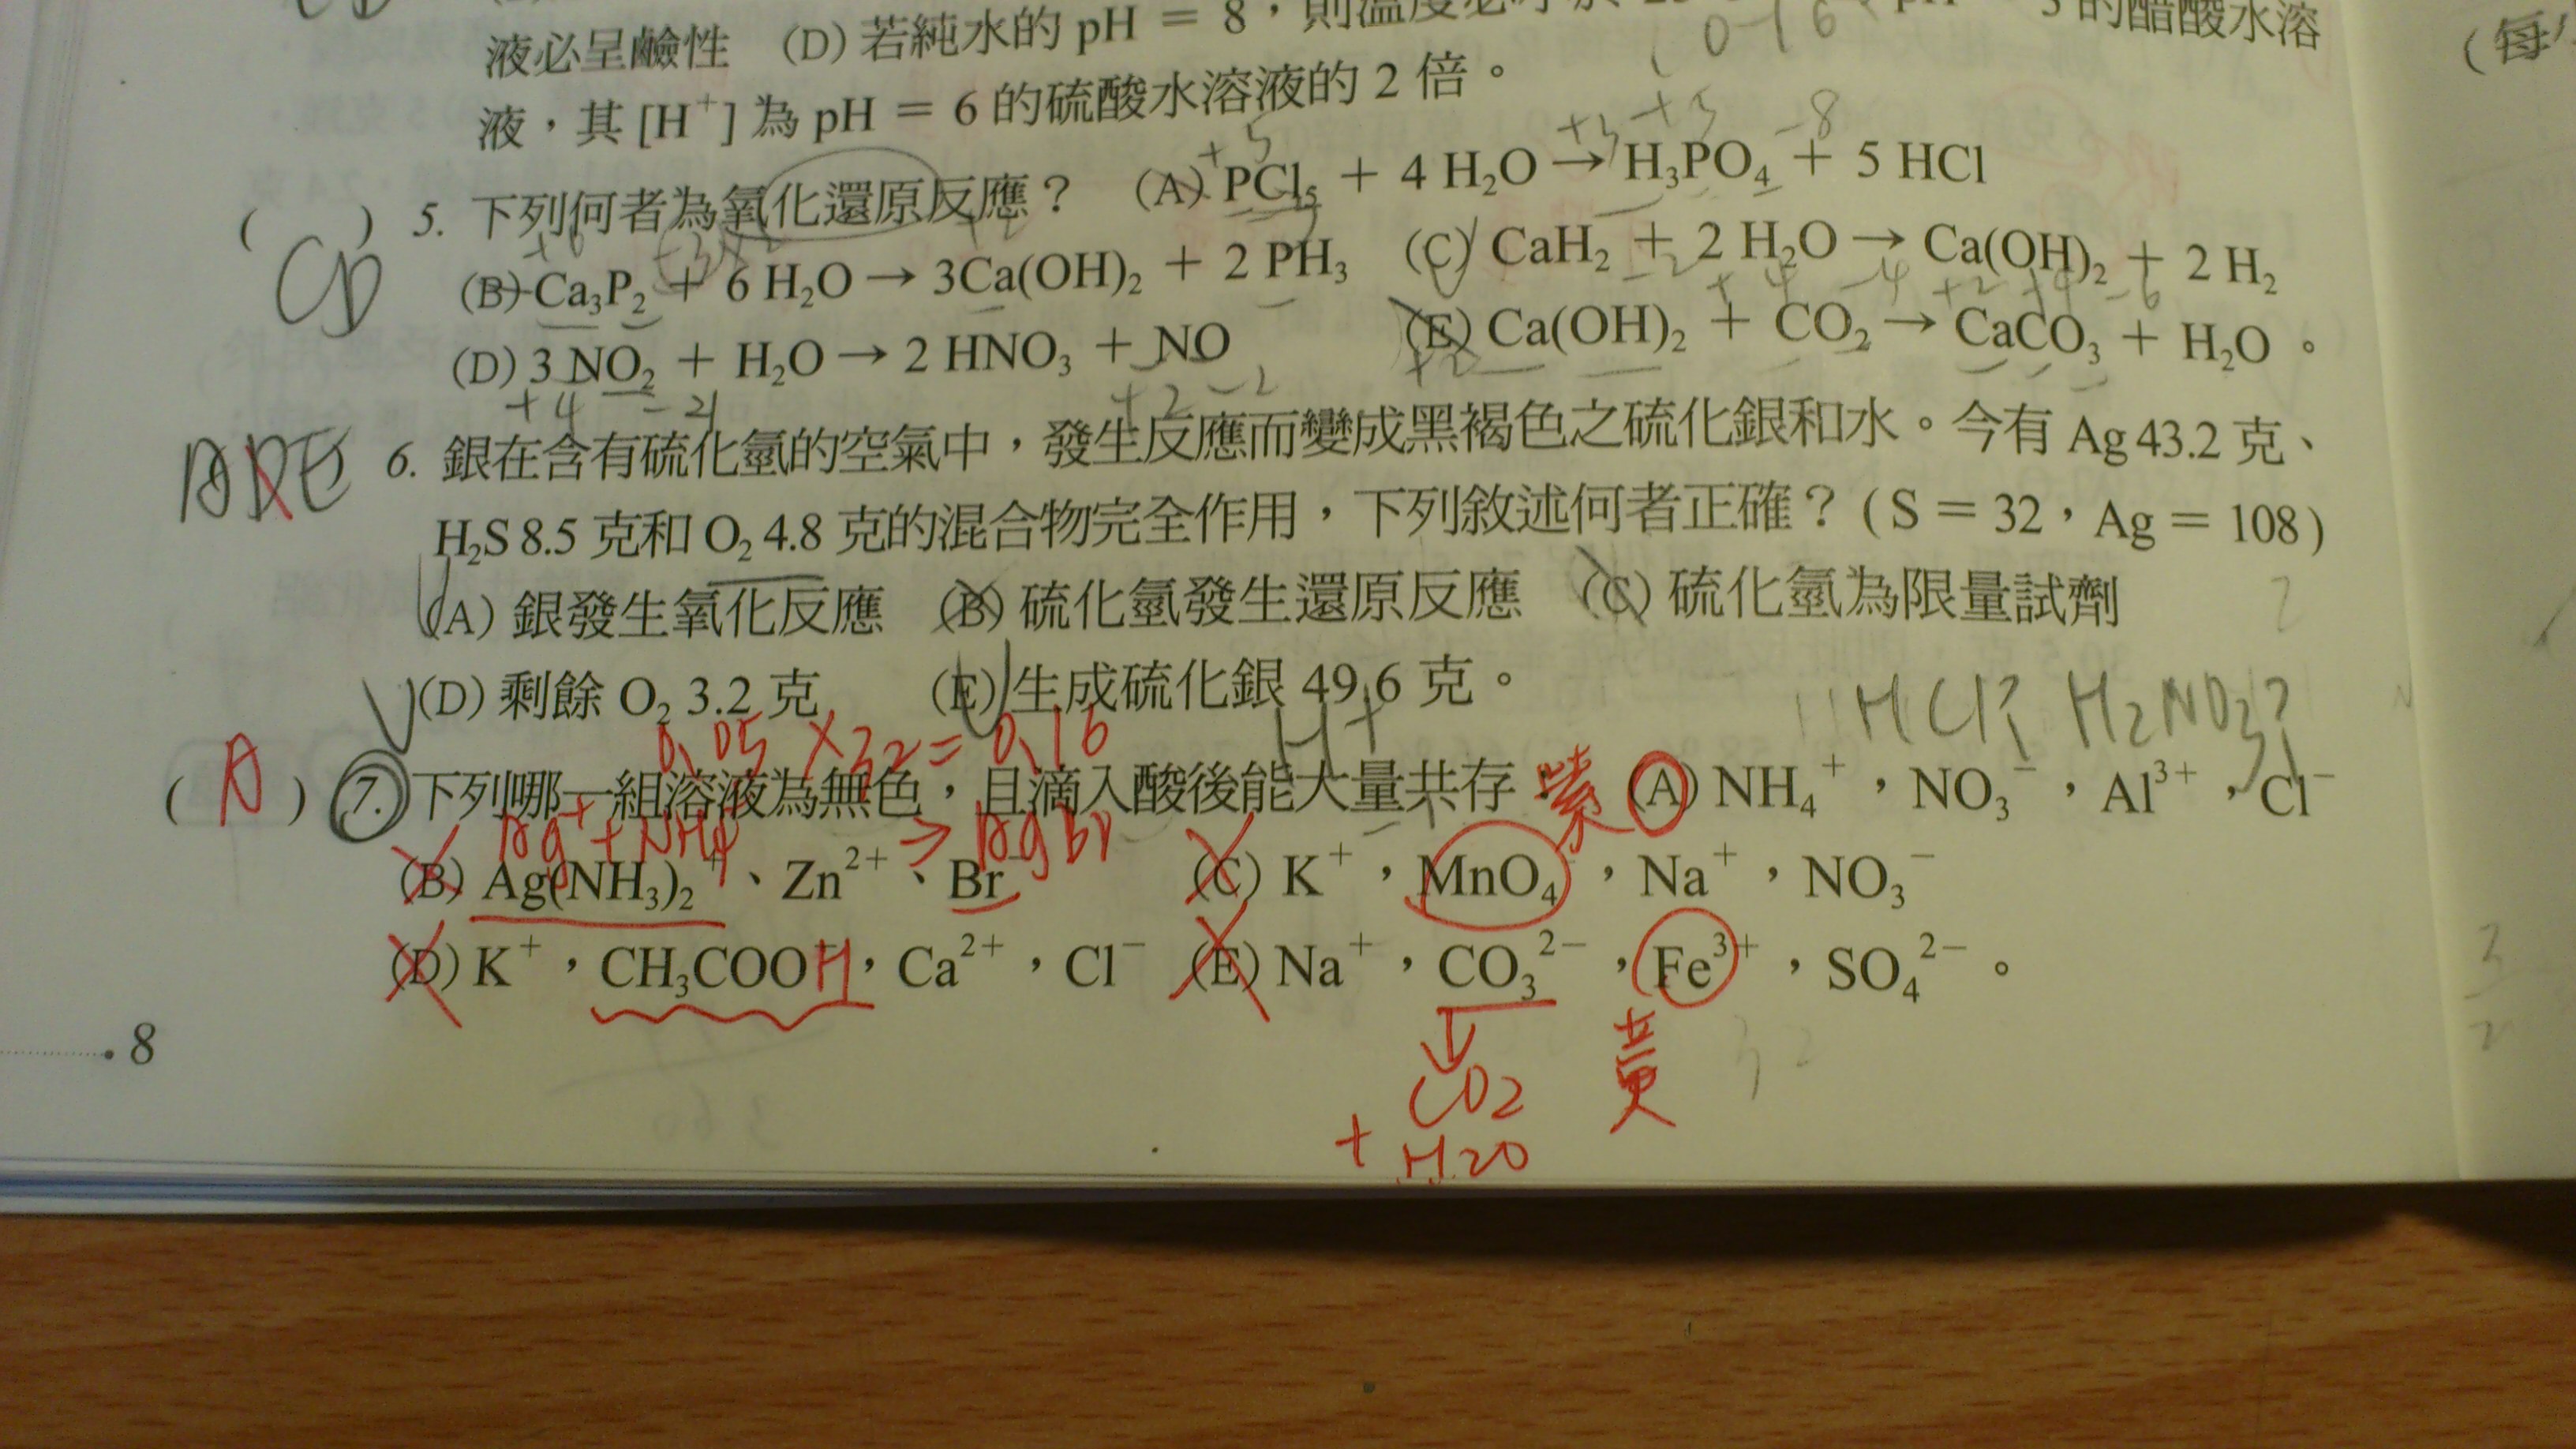 液必呈鹼性 (D) 若純水的 pH = 8，則溫度必
的醋酸水溶
液，其 [H⁺] 為 pH = 6 的硫酸水溶液的 2 倍。
( ) 5. 下列何者為氧化還原反應？ (A) PCl₅ + 4 H₂O → H₃PO₄ + 5 HCl
+5 +3 +5 -8
CD
(B) Ca₃P₂ + 6 H₂O → 3Ca(OH)₂ + 2 PH₃ (C) CaH₂ + 2 H₂O → Ca(OH)₂ + 2 H₂
+6
(D) 3 NO₂ + H₂O → 2 HNO₃ + NO (E) Ca(OH)₂ + CO₂ → CaCO₃ + H₂O。
-2 +4 -4 +2 +4 -6
+4 +2 -2 +2
ADE 6. 銀在含有硫化氫的空氣中，發生反應而變成黑褐色之硫化銀和水。今有 Ag 43.2 克、
H₂S 8.5 克和 O₂ 4.8 克的混合物完全作用，下列敘述何者正確？(S = 32，Ag = 108)
(A) 銀發生氧化反應 (B) 硫化氫發生還原反應 (C) 硫化氫為限量試劑
(D) 剩餘 O₂ 3.2 克 (E) 生成硫化銀 49.6 克。
HCl? H₂NO₃?
0.05 × 32 = 0.16 H+
( A ) 7. 下列哪一組溶液為無色，且滴入酸後能大量共存 紫 (A) NH₄⁺，NO₃⁻，Al³⁺，Cl⁻
Ag⁺ + NH₄⁺ → AgBr
(B) Ag(NH₃)₂⁺、Zn²⁺、Br (C) K⁺，MnO₄⁻，Na⁺，NO₃⁻
(D) K⁺，CH₃COOH，Ca²⁺，Cl⁻ (E) Na⁺，CO₃²⁻，Fe³⁺，SO₄²⁻。
CO2 黃
+ H2O
8